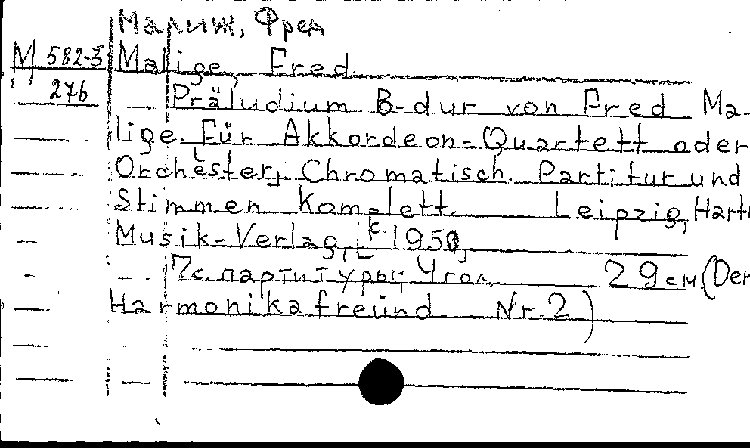 Малиж, Фред
М 582-5 Malige, Fred.
276 Präludium B-dur von Fred Ma-
lige. Für Akkordeon-Quartett oder
Orchester, Chromatisch. Partitur und
Stimmen komplett. Leipzig, Hart
Musik-Verlag, c. 1950,
7с. партитуры, 4гол. 29см. (Der
Harmonikafreünd Nr. 2)